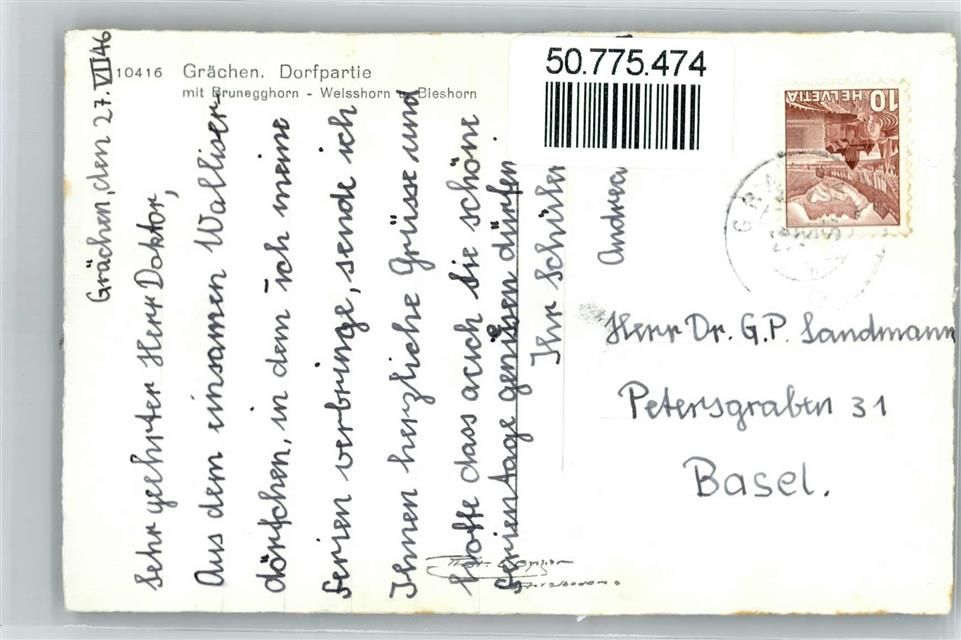 10416 Grächen. Dorfpartie
mit Brunegghorn - Weisshorn u. Bieshorn
50.775.474
HELVETIA
10
Grächen, den 27. VII 46
Sehr geehrter Herr Doktor,
Aus dem einsamen Walliser-
dörfchen, in dem ich meine
Ferien verbringe, sende ich
Ihnen herzliche Grüsse und
hoffe dass auch Sie schöne
Ferientage geniesen dürfen
Ihr Schüler
Andrea
Herr Dr. G.P. Landmann
Petersgraben 31
Basel.